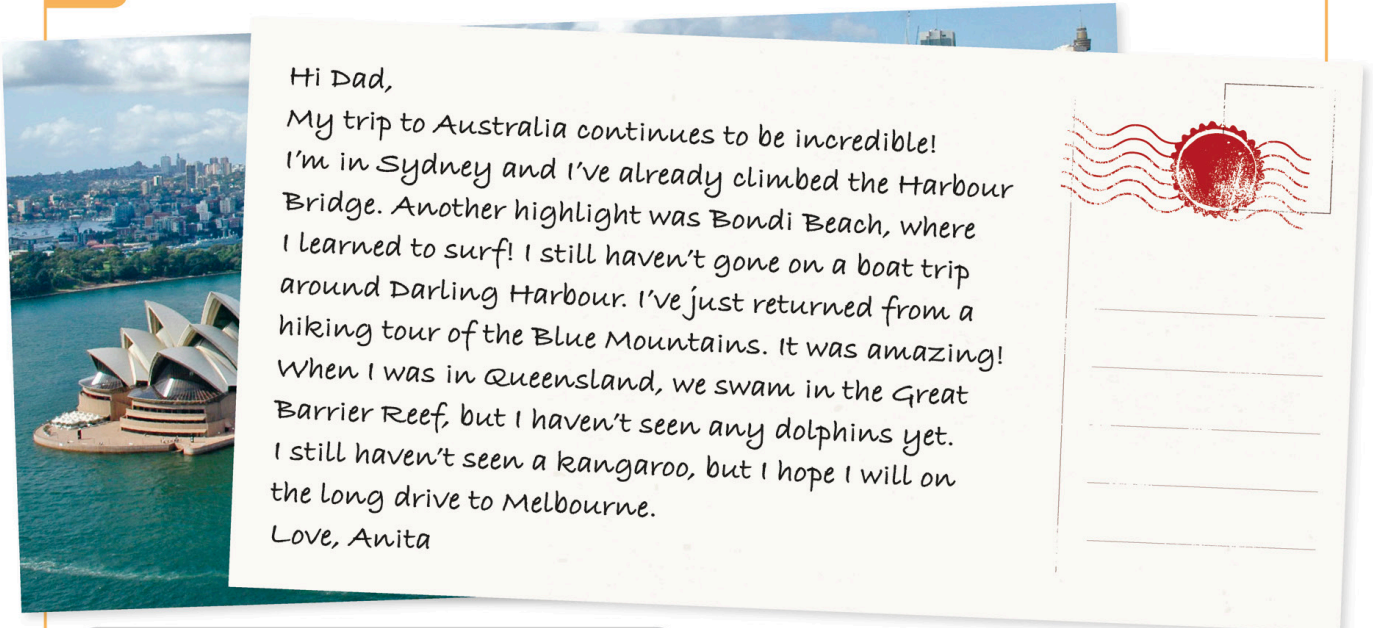 Hi Dad,
My trip to Australia continues to be incredible!
I'm in Sydney and I've already climbed the Harbour
Bridge. Another highlight was Bondi Beach, where
I learned to surf! I still haven't gone on a boat trip
around Darling Harbour. I've just returned from a
hiking tour of the Blue Mountains. It was amazing!
When I was in Queensland, we swam in the Great
Barrier Reef, but I haven't seen any dolphins yet.
I still haven't seen a kangaroo, but I hope I will on
the long drive to Melbourne.
Love, Anita